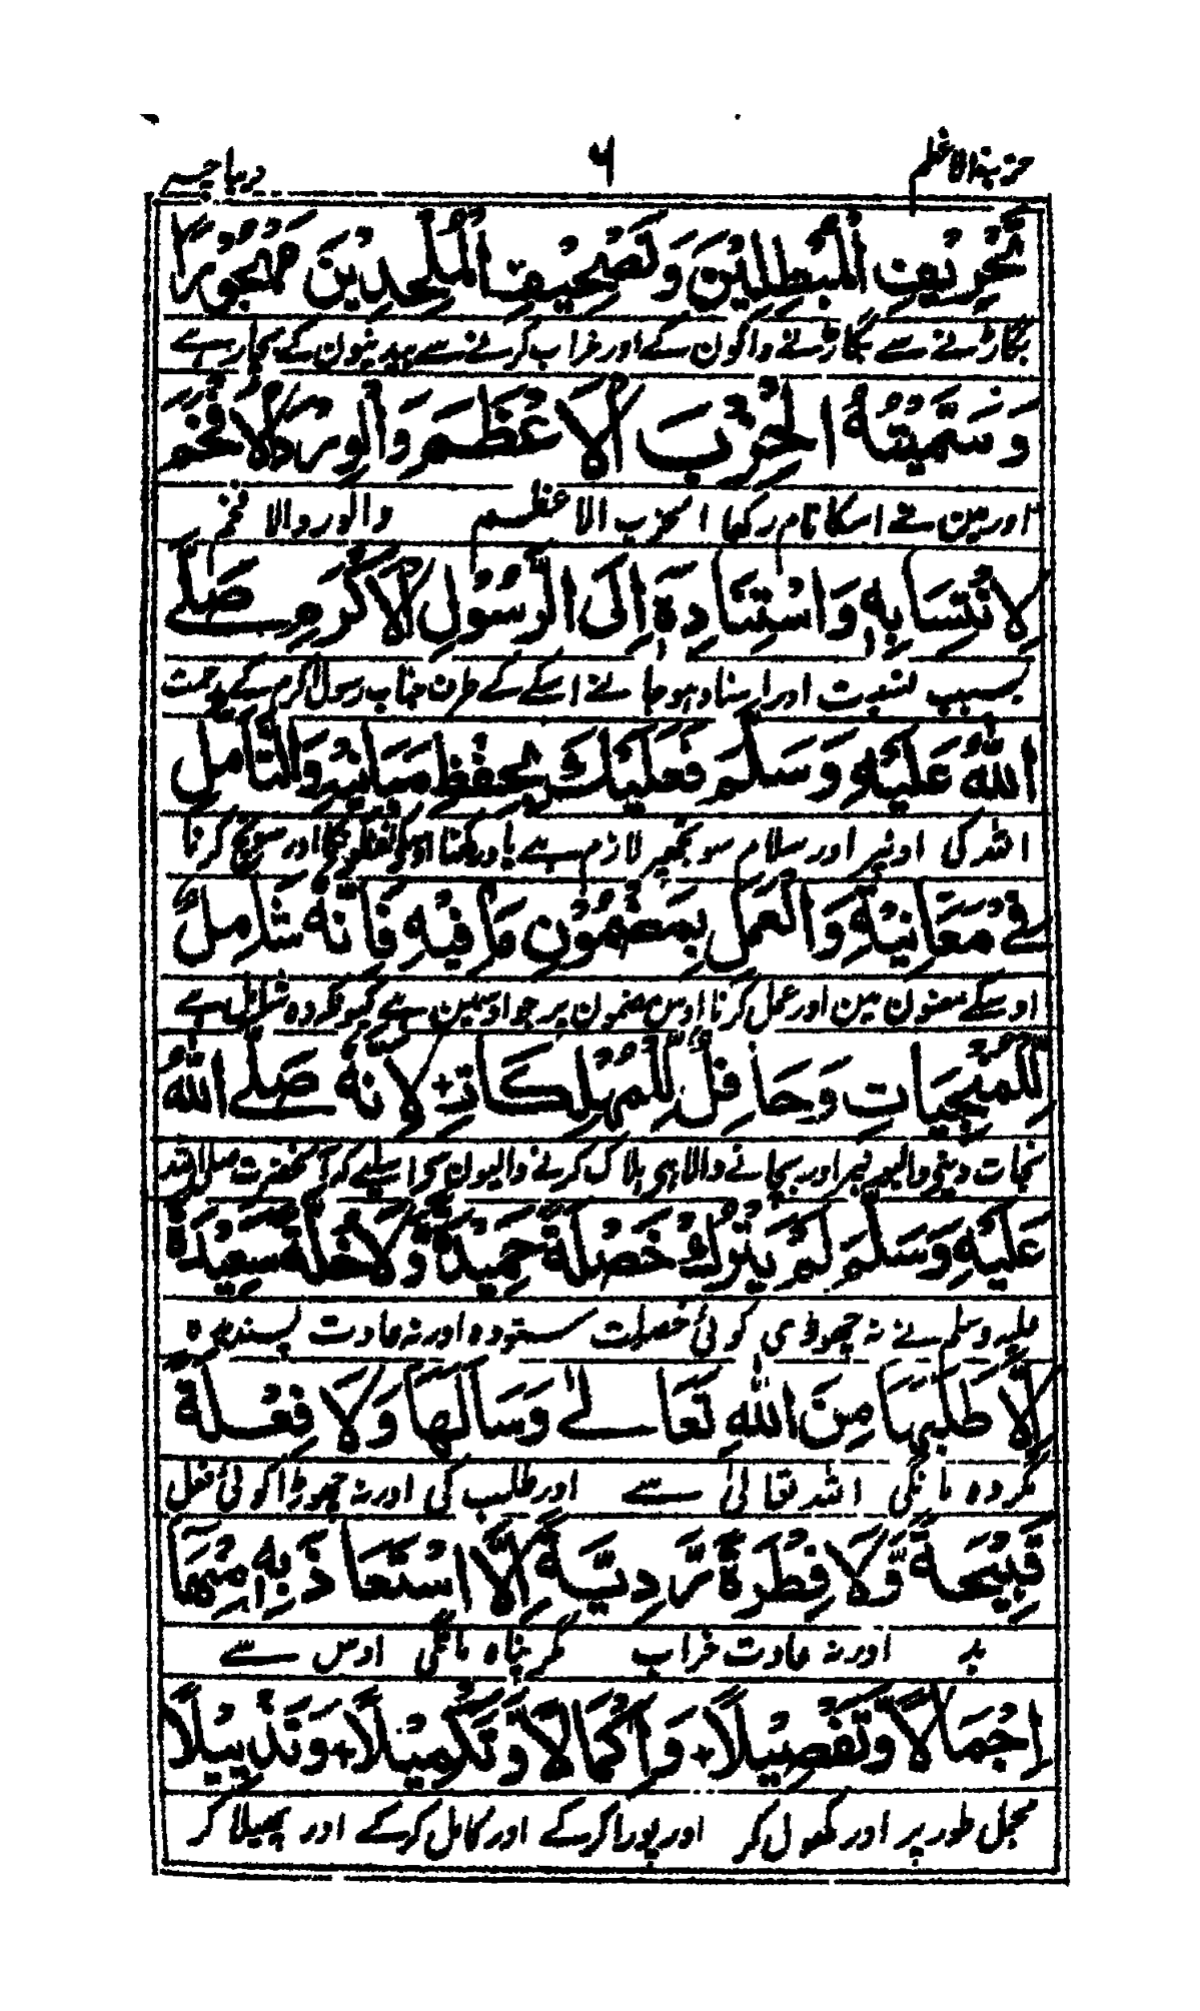 حزب الاعظم ۶ دیباچہ
تَحْرِيْفِ الْمُبْطِلِيْنَ وَتَصْحِيْفِ الْمُلْحِدِيْنَ مَهْجُوْرًا
بگاڑنے سے بگاڑنے والون کے اور خراب کرنے سے بیدینون کے بچا رہے
وَسَمَّيْتُهُ الْحِزْبَ الْاَعْظَمَ وَالْوِرْدَ الْاَفْخَمَ
اور مین نے اسکا نام رکھا الحزب الاعظم والورد الافخم
لِانْتِسَابِهٖ وَاسْتِنَادِهٖ اِلَى الرَّسُوْلِ الْاَكْرَمِ صَلَّے
بسبب نسبت اور اسناد ہوجانے اسکے کے طرف جناب رسول اکرم کے رحمت
اللّٰهُ عَلَيْهِ وَسَلَّمَ فَعَلَيْكَ بِحِفْظِ مَبَانِيْهِ وَالتَّاَمُّلِ
اللہ کی اونپر اور سلام سو تجھپر لازم ہے یاد رکھنا اوسکے لفظونکا اور سوچ کرنا
فِیْ مَعَانِيْهِ وَالْعَمَلِ بِمَضْمُوْنِ مَا فِيْهِ فَاِنَّهٗ شَامِلٌ
اوسکے معنون مین اور عمل کرنا اوس مضمون پر جو اوسمین ہے کیونکہ وہ شامل ہے
لِّلْمُنْجِيَاتِ وَحَافِلٌ لِّلْمُهْلِكَاتِ+ لِاَنَّهٗ صَلَّے اللّٰهُ
نجات دینے والیونپر اور بچانے والا ہی ہلاک کرنے والیون سے اسلیے کہ آنحضرت صلی اللہ
عَلَيْهِ وَسَلَّمَ لَمْ يَتْرُكْ خَصْلَةً حَمِيْدَةً وَّلَا خَلَّةً سَعِيْدَةً
علیہ وسلم نے نہ چھوڑی کوئی خصلت ستودہ اور نہ عادت پسندیدہ
اِلَّا طَلَبَهَا مِنَ اللّٰهِ تَعَالٰے وَسَاَلَهَا وَلَا فِعْلَةً
مگر وہ مانگی اللہ تعالیٰ سے اور طلب کی اور نہ چھوڑا کوئی فعل
قَبِيْحَةً وَّلَا فِطْرَةً رَّدِيَّةً اِلَّا اسْتَعَاذَ بِهٖ مِنْهَا
بد اور نہ عادت خراب مگر پناہ مانگی اوس سے
اِجْمَالًا وَّتَفْصِيْلًا+ وَاِكْمَالًا وَّتَكْمِيْلًا+ وَتَذْيِيْلًا
مجمل طور پر اور کھول کر اور پورا کرکے اور کامل کرکے اور پھیلا کر